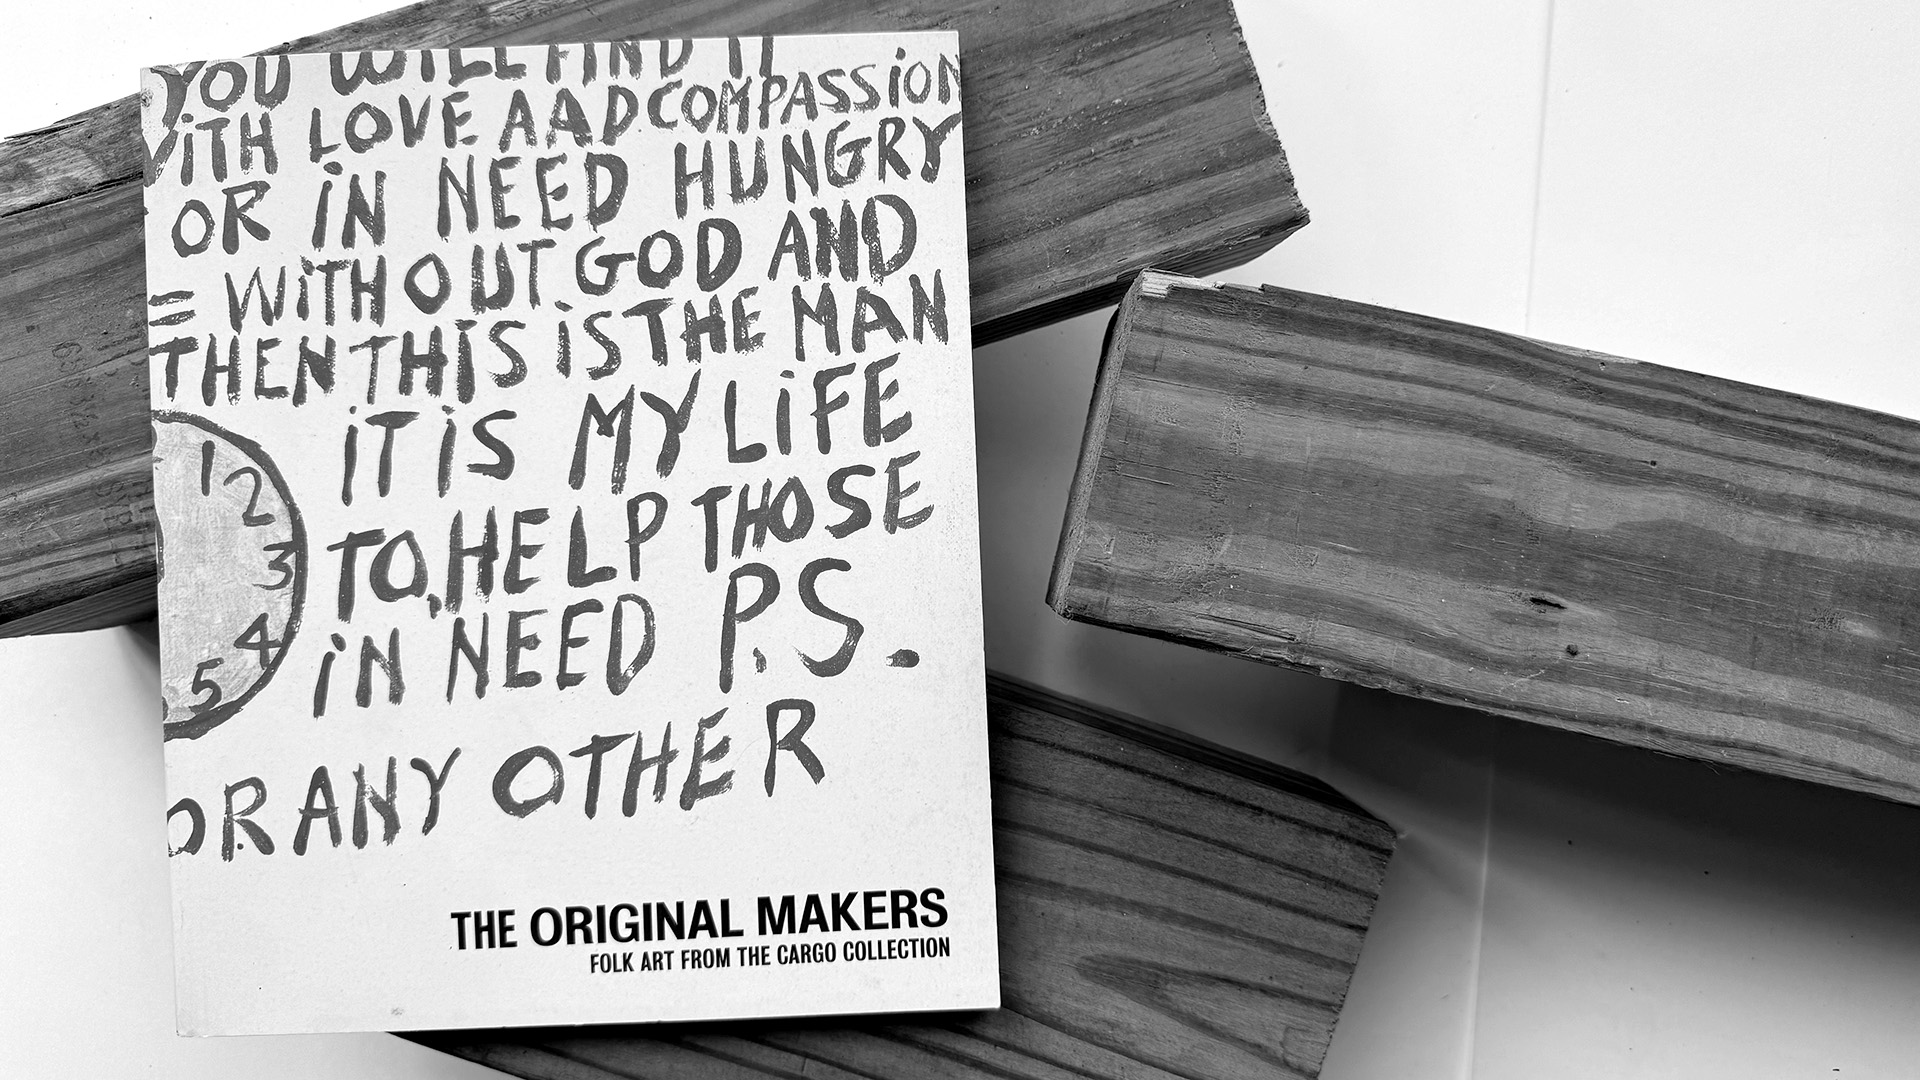 YOU WILL FIND IT
WITH LOVE AAD COMPASSION
OR iN NEED HUNGRY
= WiTHOUT GOD AND
THEN THIS iS THE MAN
iT iS MY LiFE
TO, HELP THOSE
iN NEED P.S.
OR ANY OTHER
12
3
4
5
THE ORIGINAL MAKERS
FOLK ART FROM THE CARGO COLLECTION